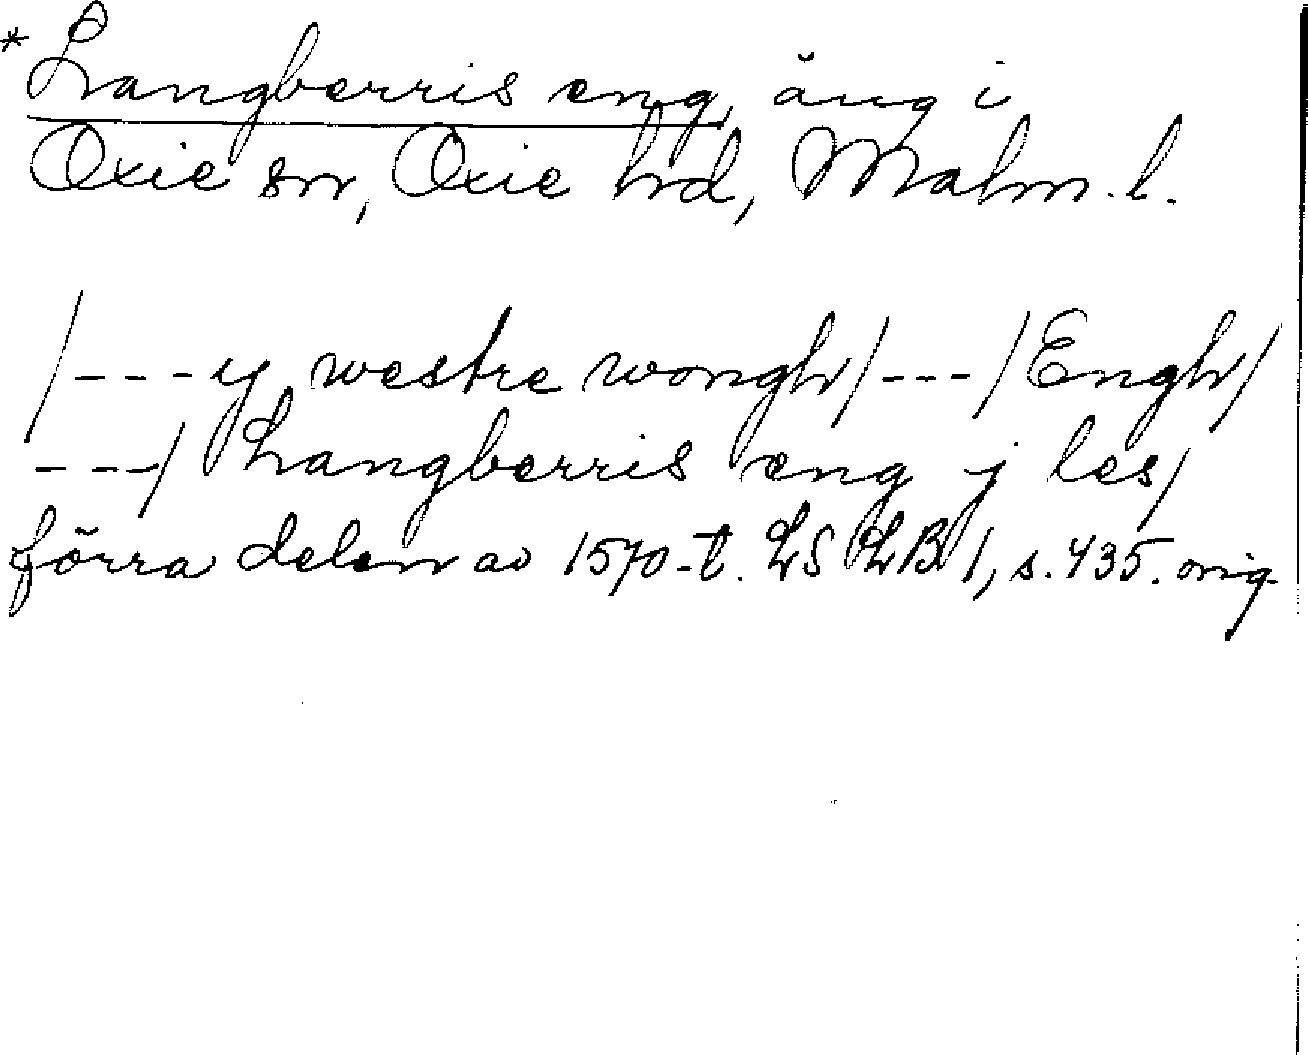 * Langberris eng, äng i
Oxie sn, Oxie hd, Malm. l.
/---y westre wongh/---/Engh/
---/ Langberris eng j les/
förra delen av 1570-t. LS LB 1, s. 435. orig.